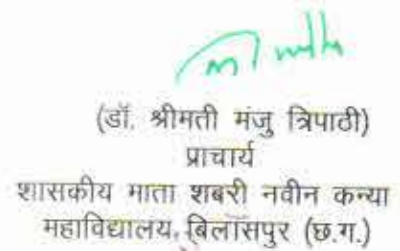 (डॉ. श्रीमती मंजु त्रिपाठी)
प्राचार्य
शासकीय माता शबरी नवीन कन्या
महाविद्यालय, बिलासपुर (छ.ग.)